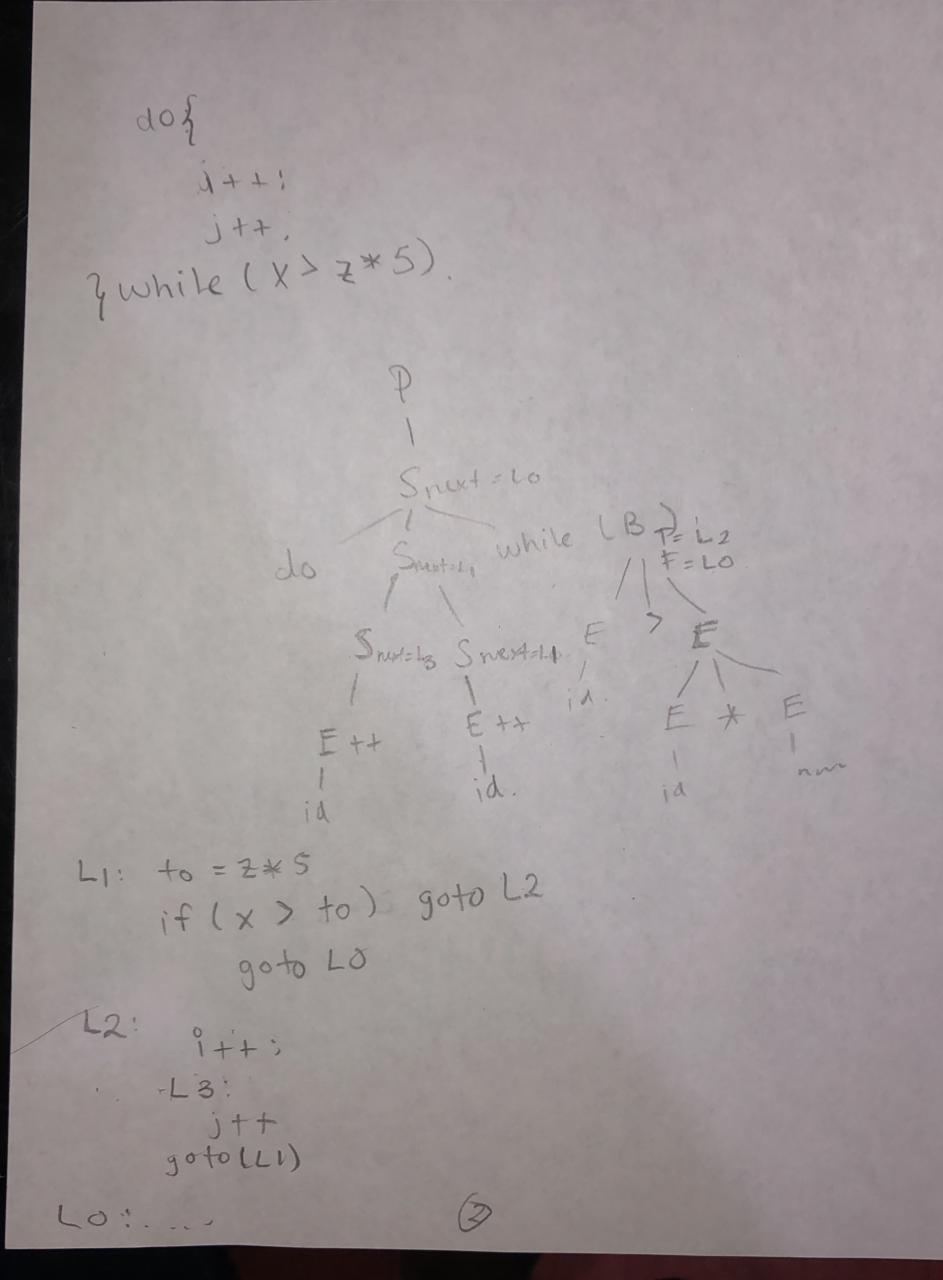 do{
i++;
j++;
}while (x > z * 5).
P
S next = L0
do S next=L1 while (B) T= L2
F = L0
S next=L3 S next=L1 E > E
E ++ E ++ id. E * E
id id. id num
L1: t0 = z * 5
if (x > t0) goto L2
goto L0
L2:
i++;
L3:
j++
goto(L1)
L0:....
2